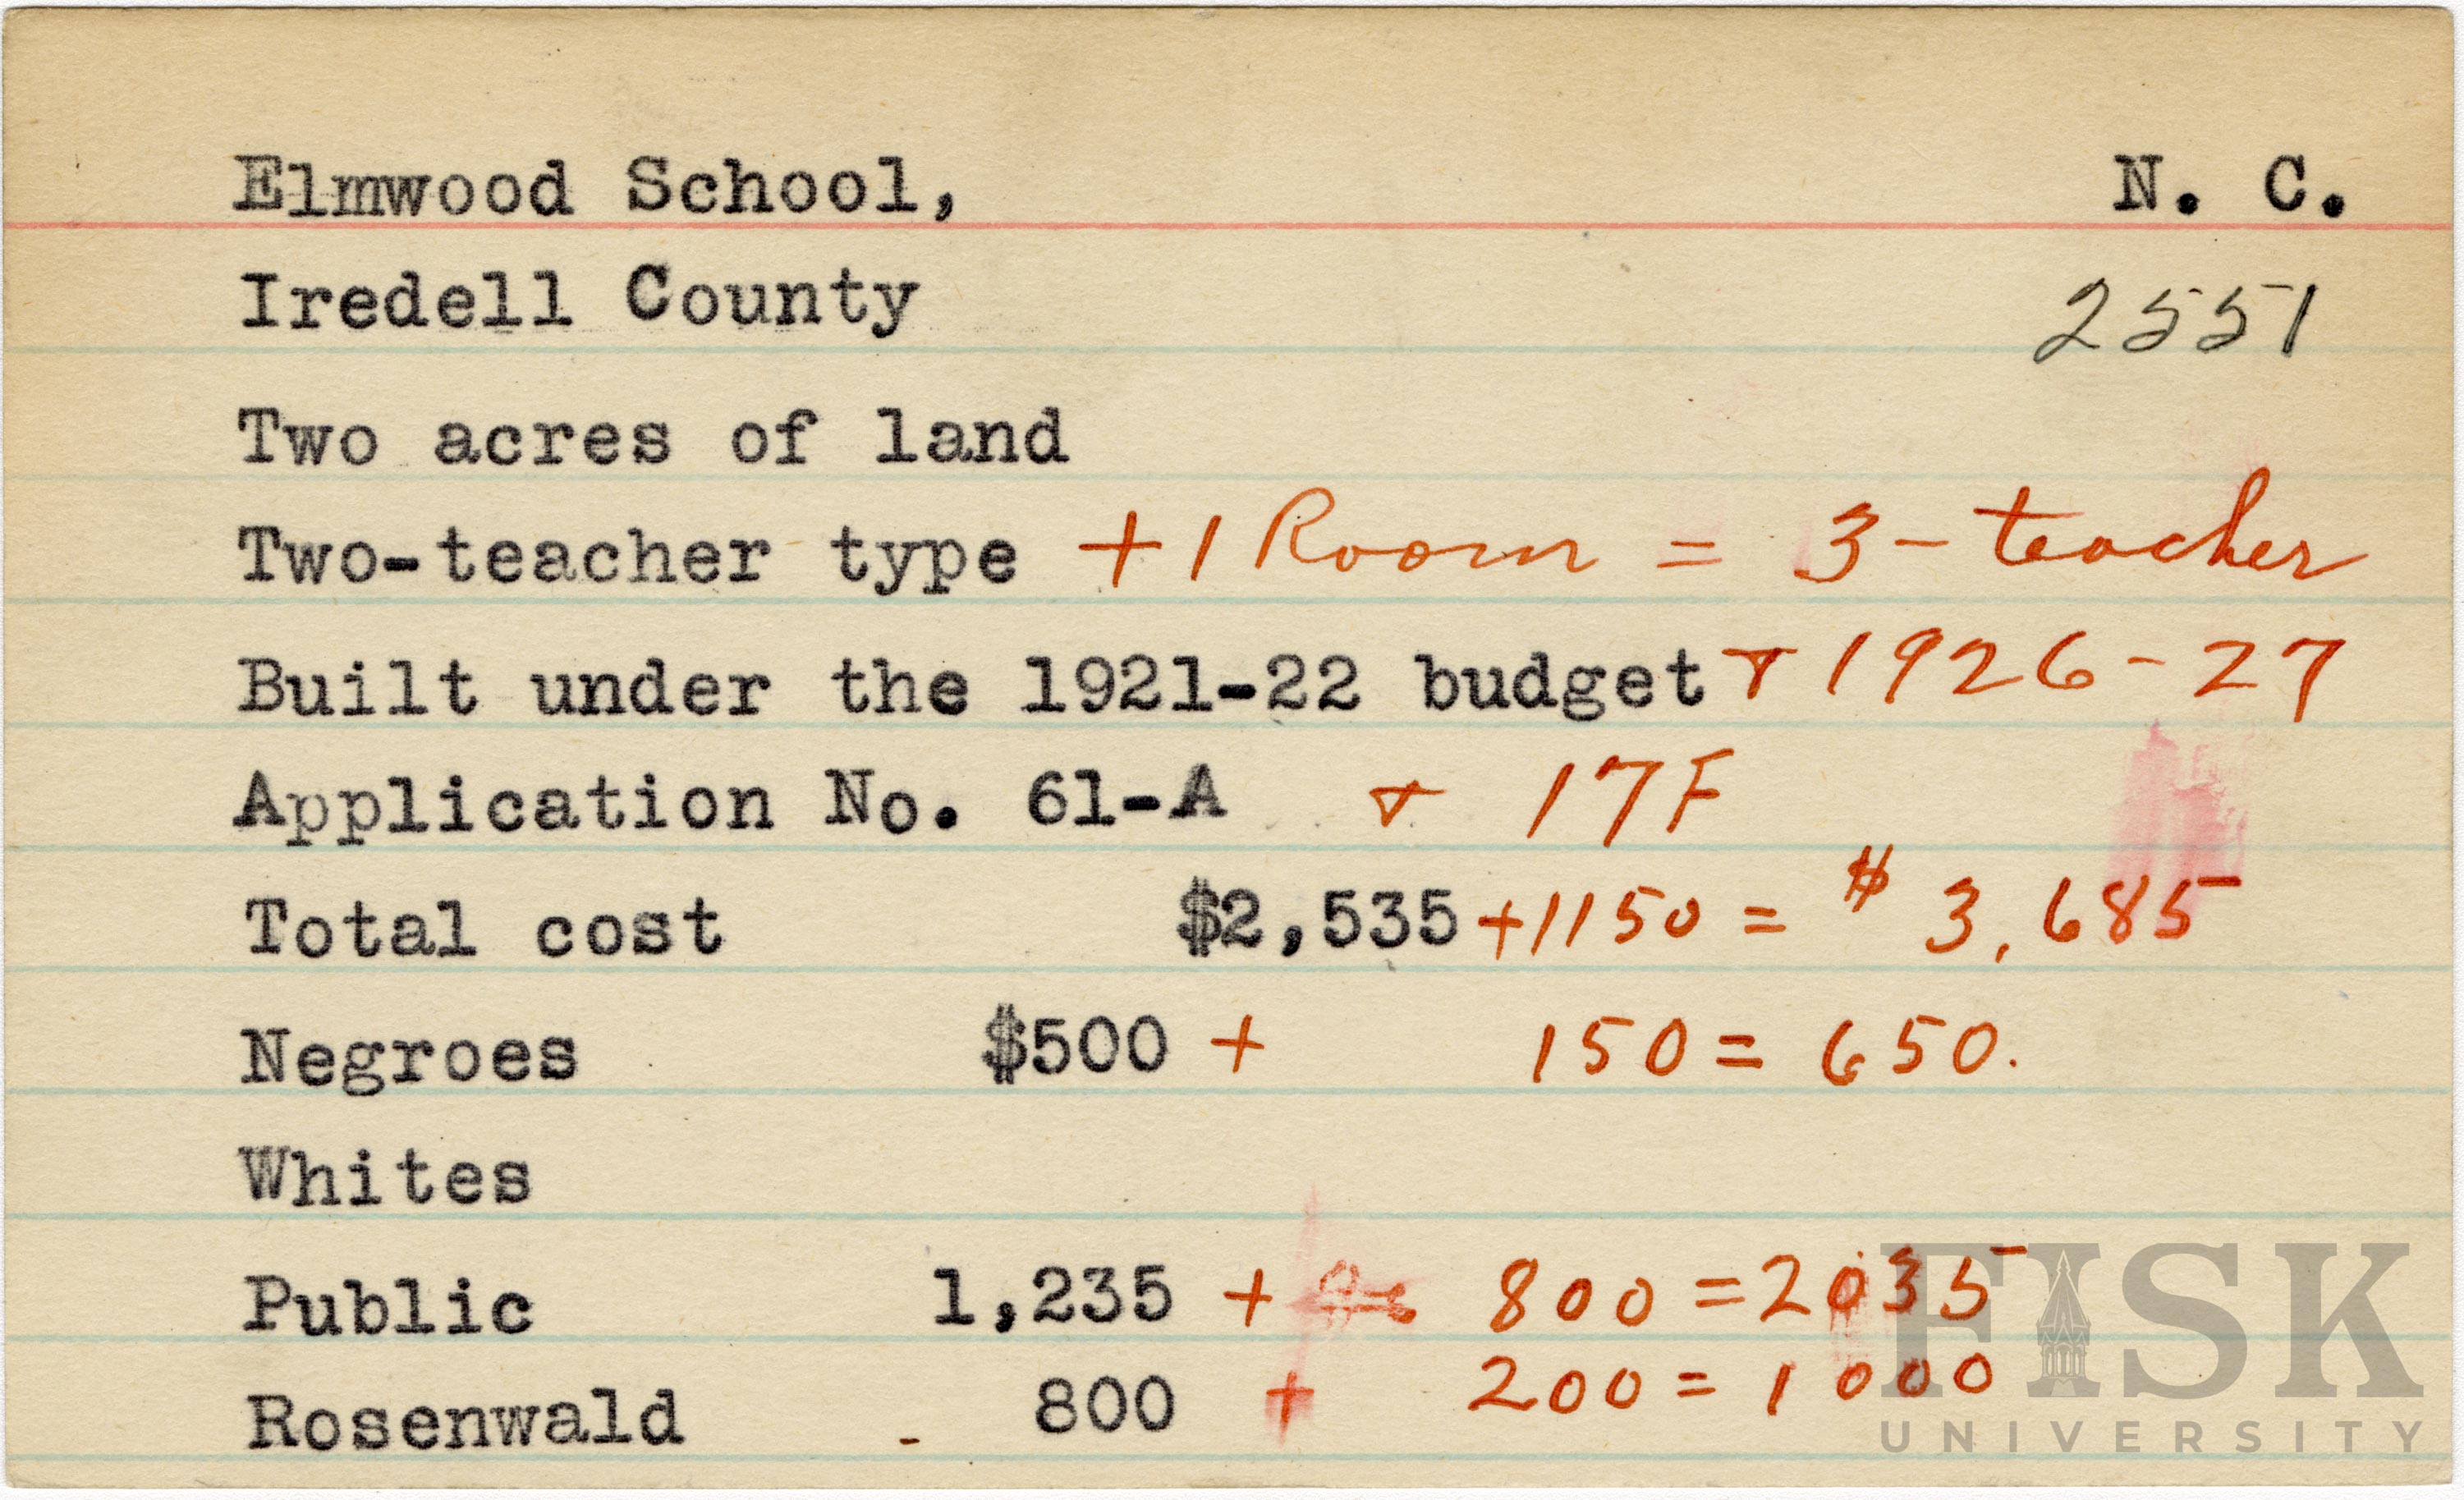 Elmwood School, N. C.
Iredell County 2551
Two acres of land
Two-teacher type + 1 Room = 3-teacher
Built under the 1921-22 budget + 1926-27
Application No. 61-A + 17F
Total cost $2,535 + 1150 = $3,685
Negroes $500 + 150 = 650.
Whites
Public 1,235 + 800 = 2035
Rosenwald 800 + 200 = 1000
FISK
UNIVERSITY